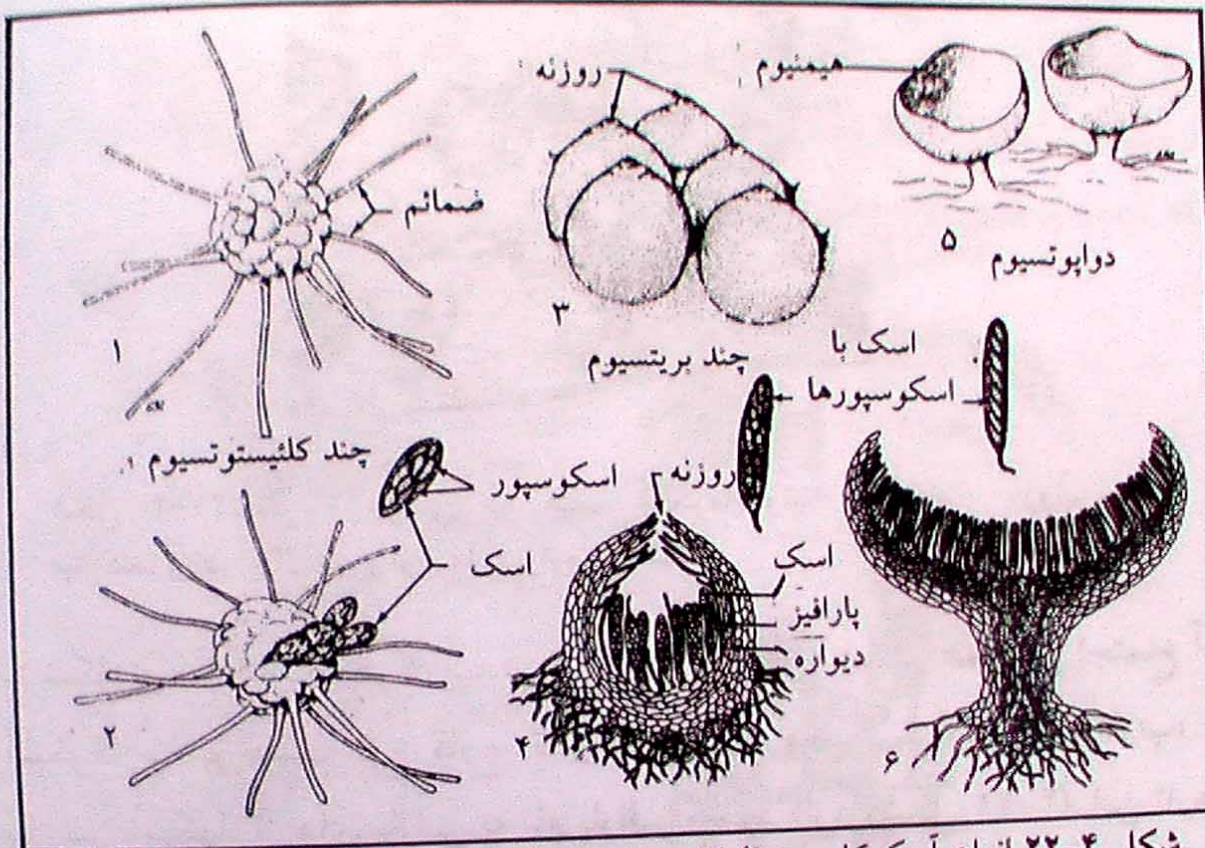 روزنه
هیمنیوم
ضمائم
۱
۳
۵
دواپوتسیوم
چند بریتسیوم
اسک با
اسکوسپورها
چند کلئیستوتسیوم
اسکوسپور
روزنه
اسک
اسک
پارافیز
دیواره
۲
۴
۶
شکل ۴ـ۲۲